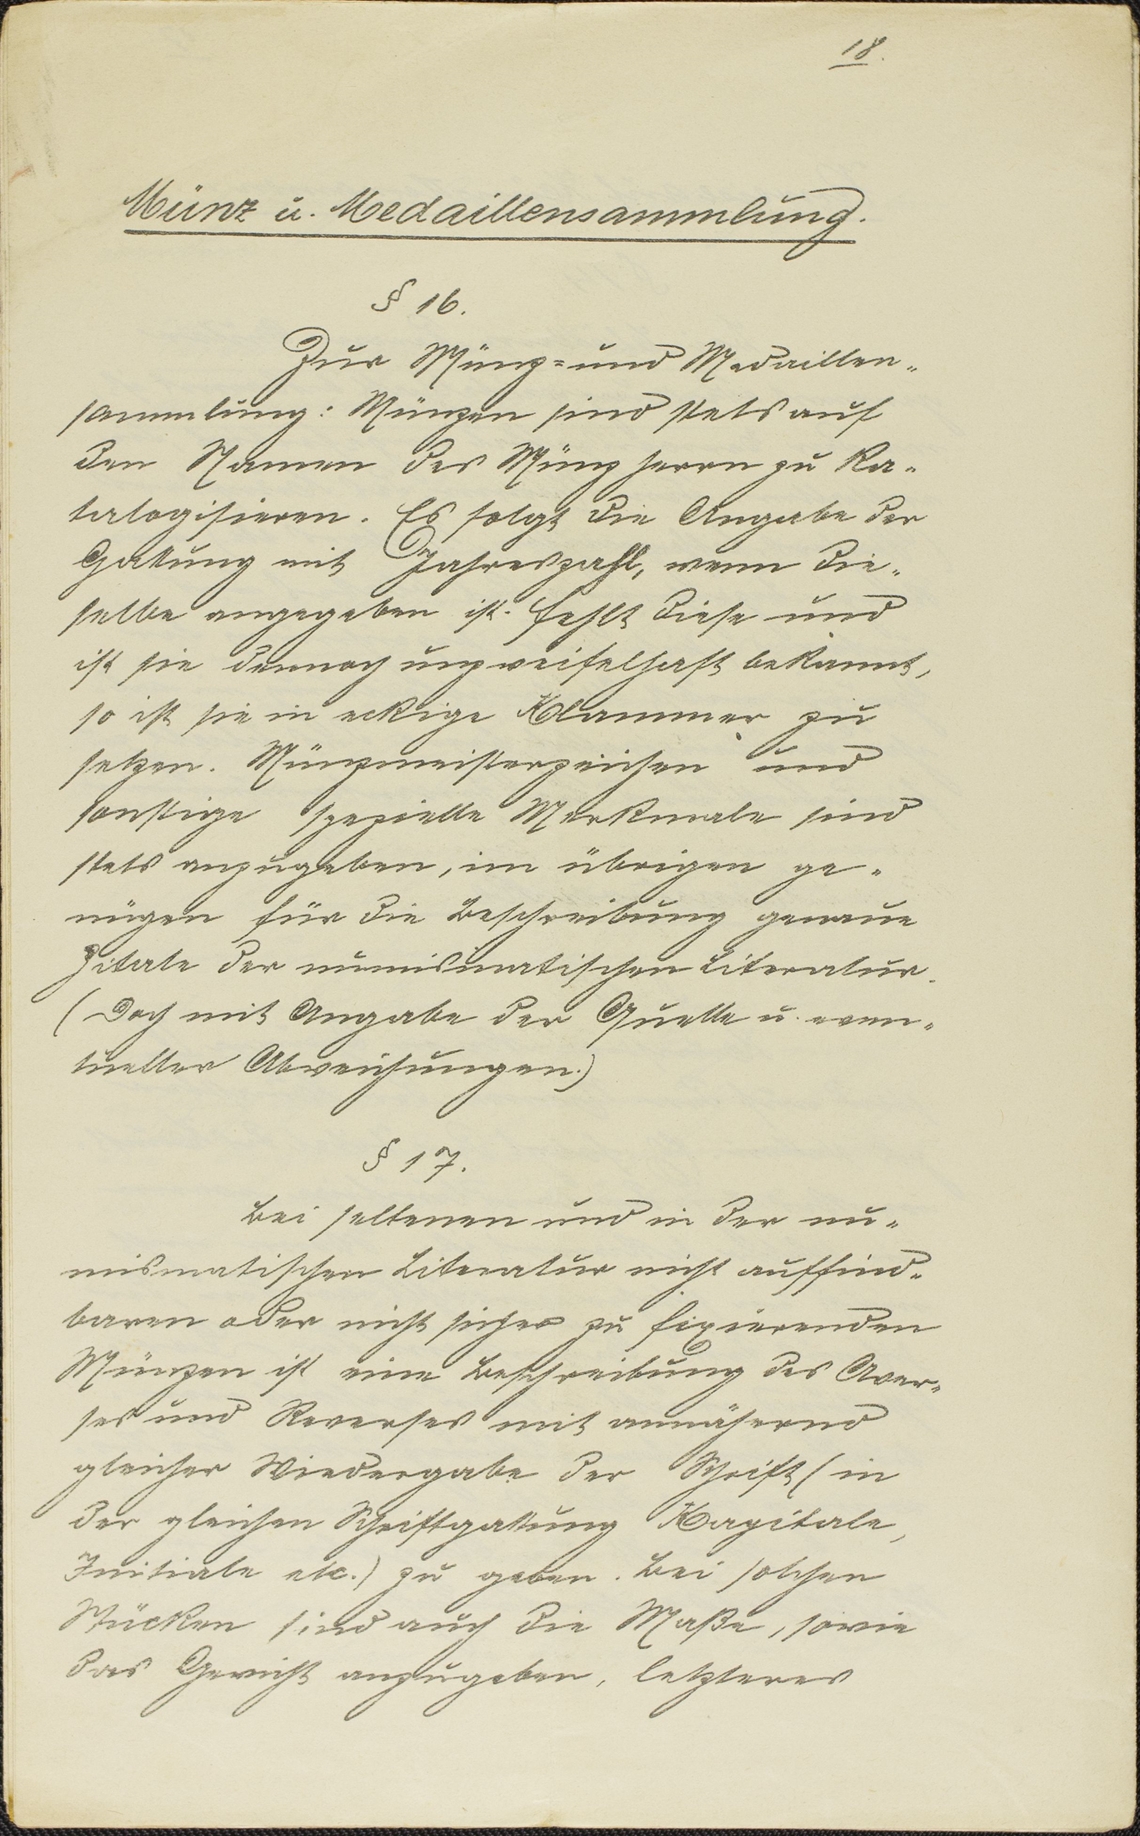 18.
Münz u. Medaillensammlung.
§ 16.
Zur Münz=und Medaillen-
sammlung: Münzen sind stets auf
den Namen des Münzherrn zu ka-
talogisieren. Es folgt die Angabe der
Gattung mit Jahreszahl, wenn die-
selbe angegeben ist. Fehlt diese und
ist sie dennoch unzweifelhaft bekannt,
so ist sie in eckige Klammer zu
setzen. Münzmeisterzeichen und
sonstige spezielle Merkmale sind
stets anzugeben, im übrigen ge-
nügen für die Beschreibung genaue
Zitate der numismatischen Literatur.
(Doch mit Angabe der Quelle u. even-
tueller Abweichungen.)
§ 17.
Bei seltenen und in der nu-
mismatischen Literatur nicht auffind-
baren oder nicht sicher zu fixierenden
Münzen ist eine Beschreibung des Aver-
ses und Reverses mit annähernd
gleicher Wiedergabe der Schrift (in
der gleichen Schriftgattung Kapitale,
Initiale etc.) zu geben. Bei solchen
Stücken sind auch die Maße, sowie
das Gewicht anzugeben, letzteres